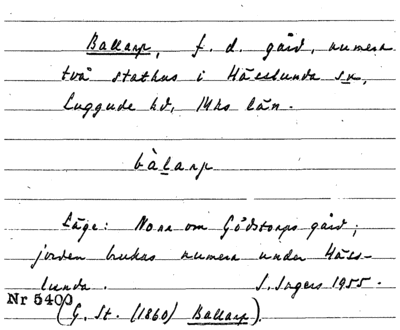 Ballarp, f. d. gård, numera
två stathus i Hässlunda sn,
Luggude hd, Mhs län.
bàlarp
Läge: Norr om Gödstorps gård;
jorden brukas numera under Häss-
lunda. S. Ingers 1955.
Nr 5400
(G. St. (1860) Ballarp).